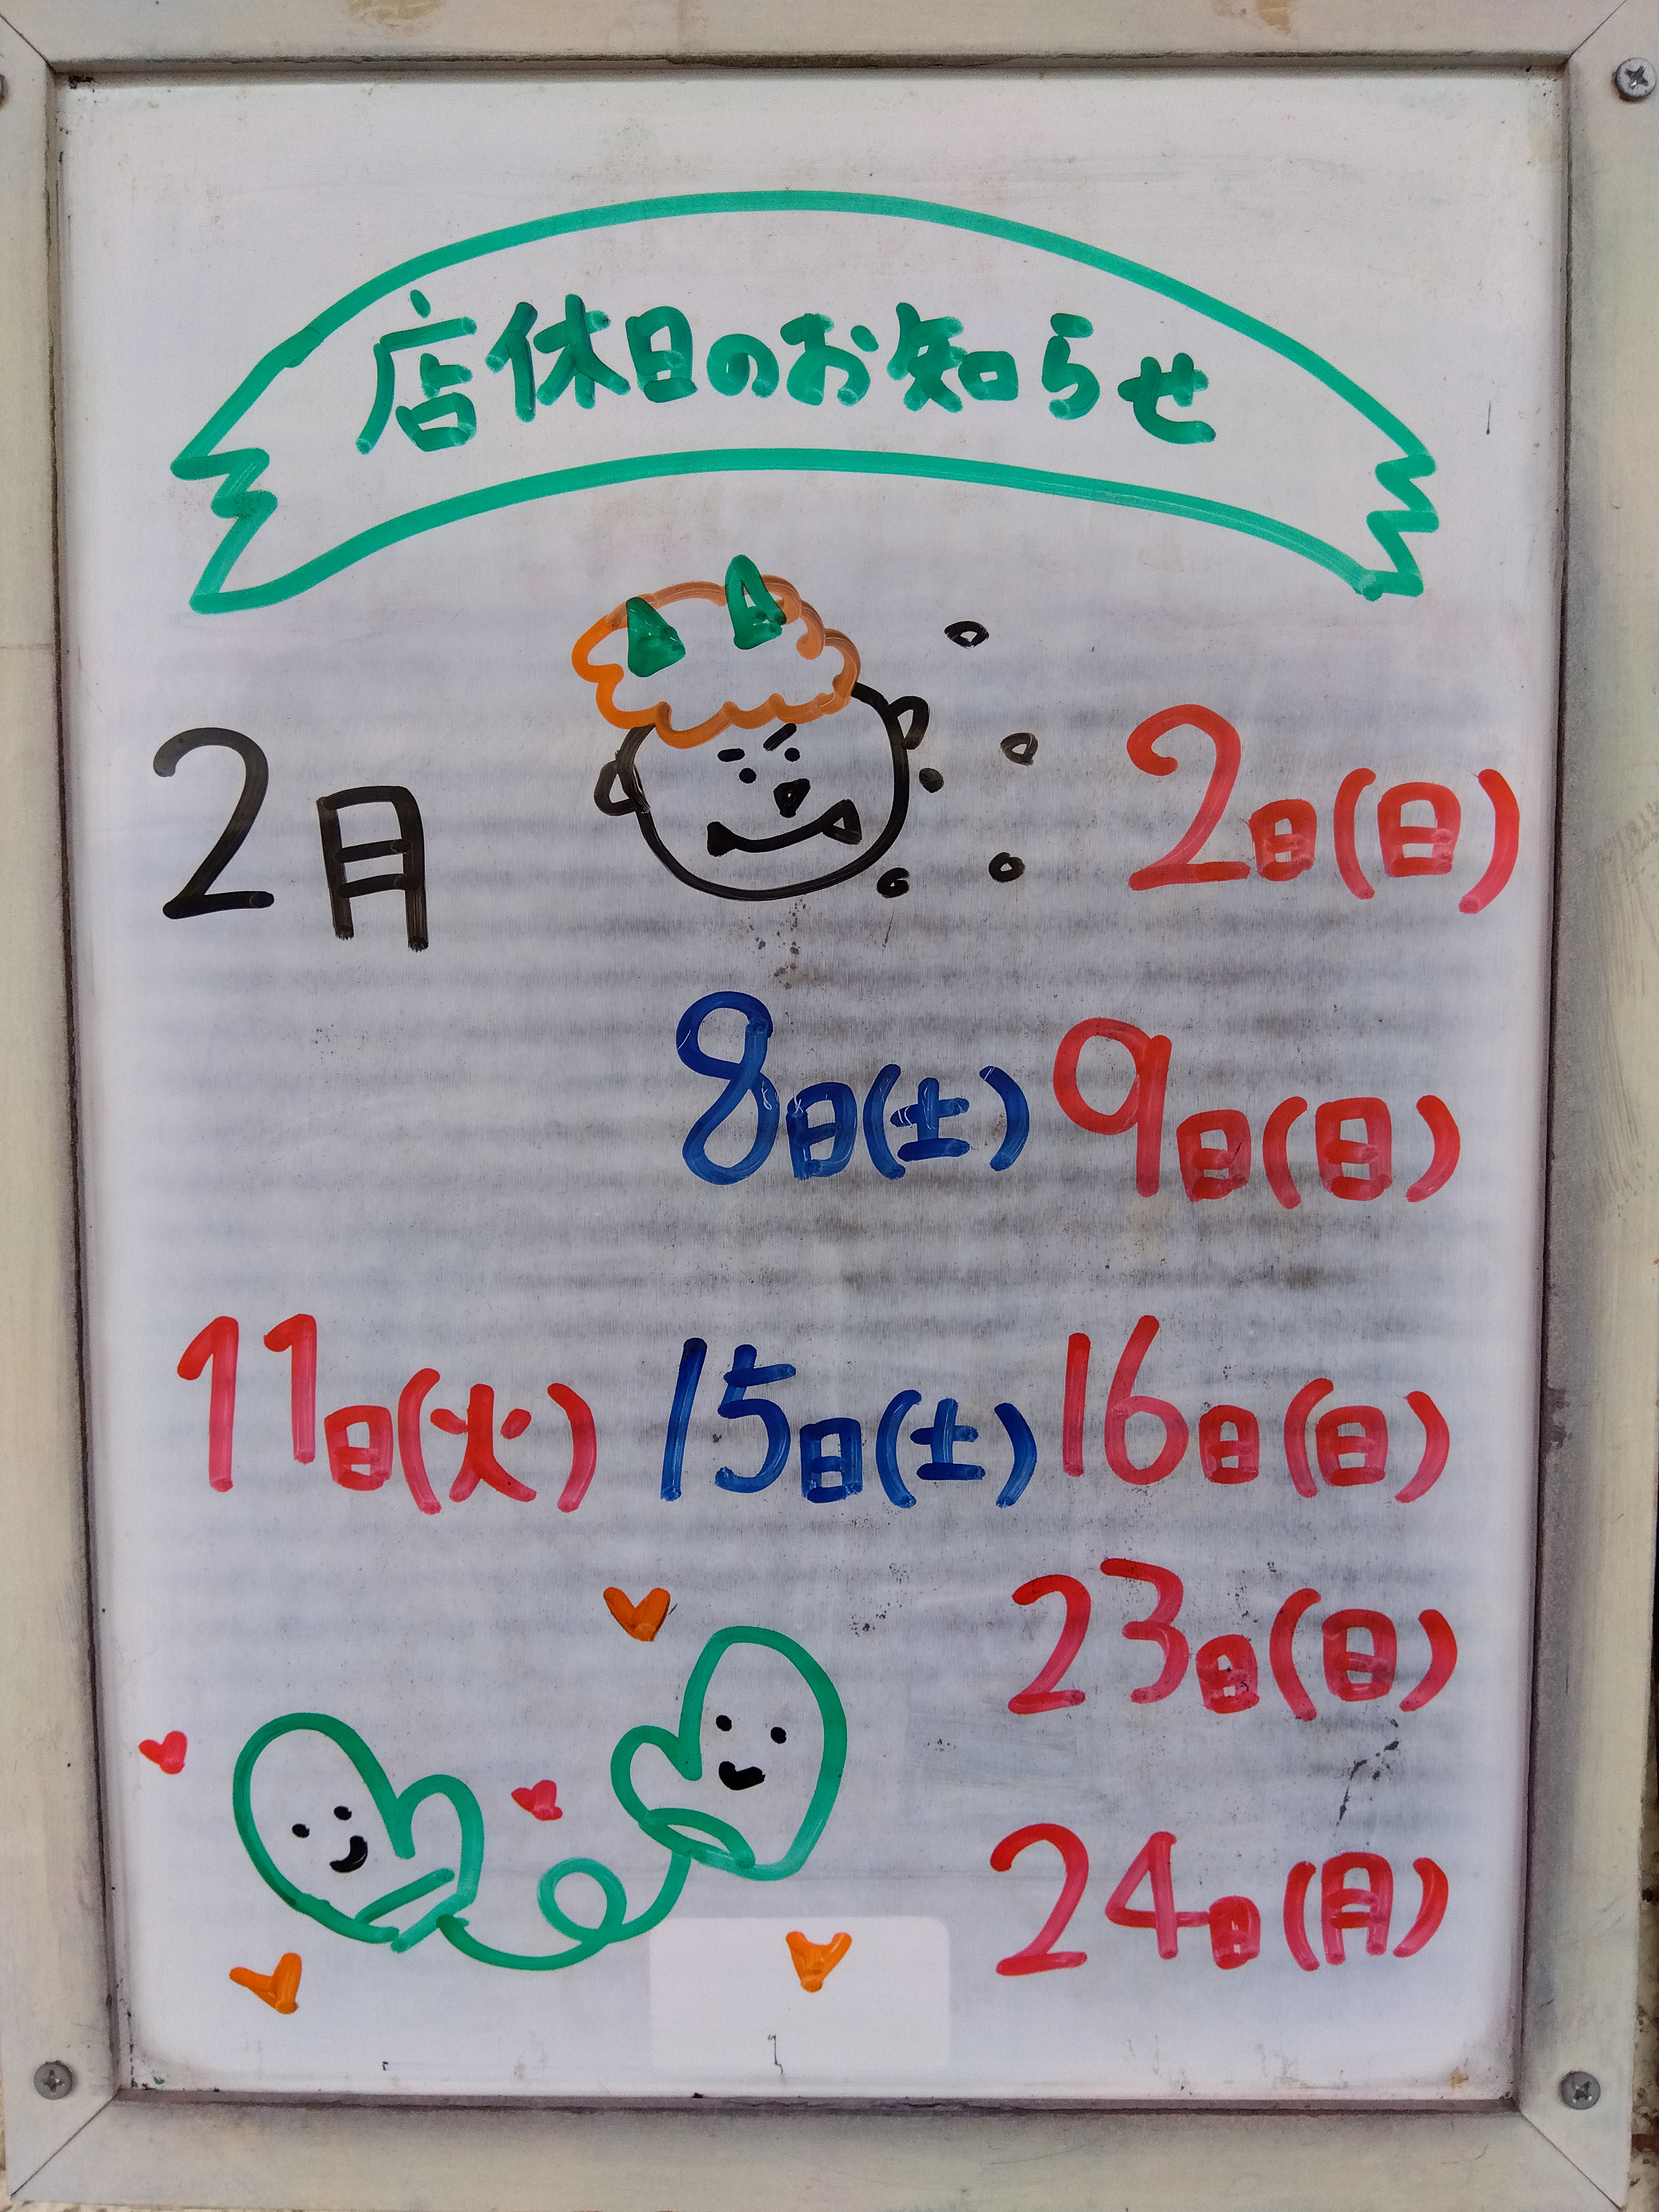 店休日のお知らせ
2月 2日(日)
8日(土) 9日(日)
11日(火) 15日(土) 16日(日)
23日(日)
24日(月)